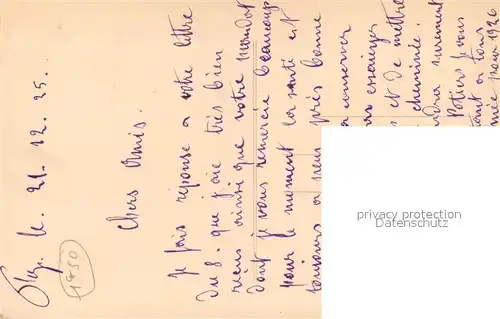 le 21. 12. 25.
Chers Amis.
Je fais réponse a votre lettre
du 8. que j'aie très bien
reçus ainsi que votre mandat
dont je vous remercie beaucoup
pour le moment la santé est
toujours a peu près bonne
conserver
essayer
et de mettre
cheminée.
surement
je vous
a tous
1926
1450
privacy protection
AKPOOL.DE